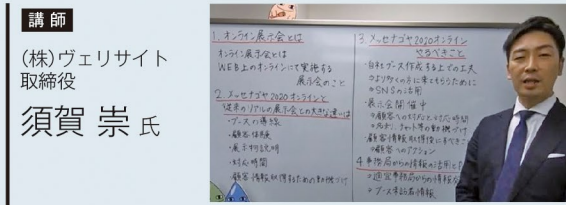 講師
(株)ヴェリサイト
取締役
須賀 崇 氏
1. オンライン展示会とは
オンライン展示会とは
WEB上のオンラインにて実施する
展示会のこと
2. メッセナゴヤ2020オンラインと
従来のリアルの展示会との大きな違いは
・ブースの導線
・顧客体験
・展示物説明
・対応時間
・顧客情報取得するための動機づけ
3. メッセナゴヤ2020オンライン
やるべきこと
・自社ブース作成する上での工夫
→より多くの方に来てもらうために
→SNSの活用
・展示会開催中
・顧客情報取得後にすべき
→顧客へのアクション
4. 事務局からの情報の活用
→適宜事務局からの情報
・ブース来訪者情報